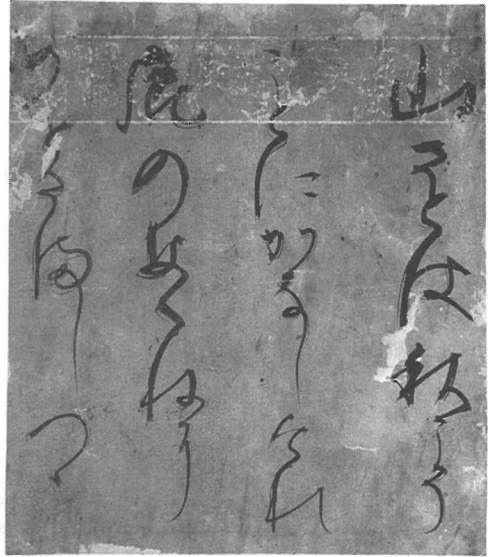 山さとは秋こそ
ことにかなしけれ
鹿のなくねに
めをさましつゝ